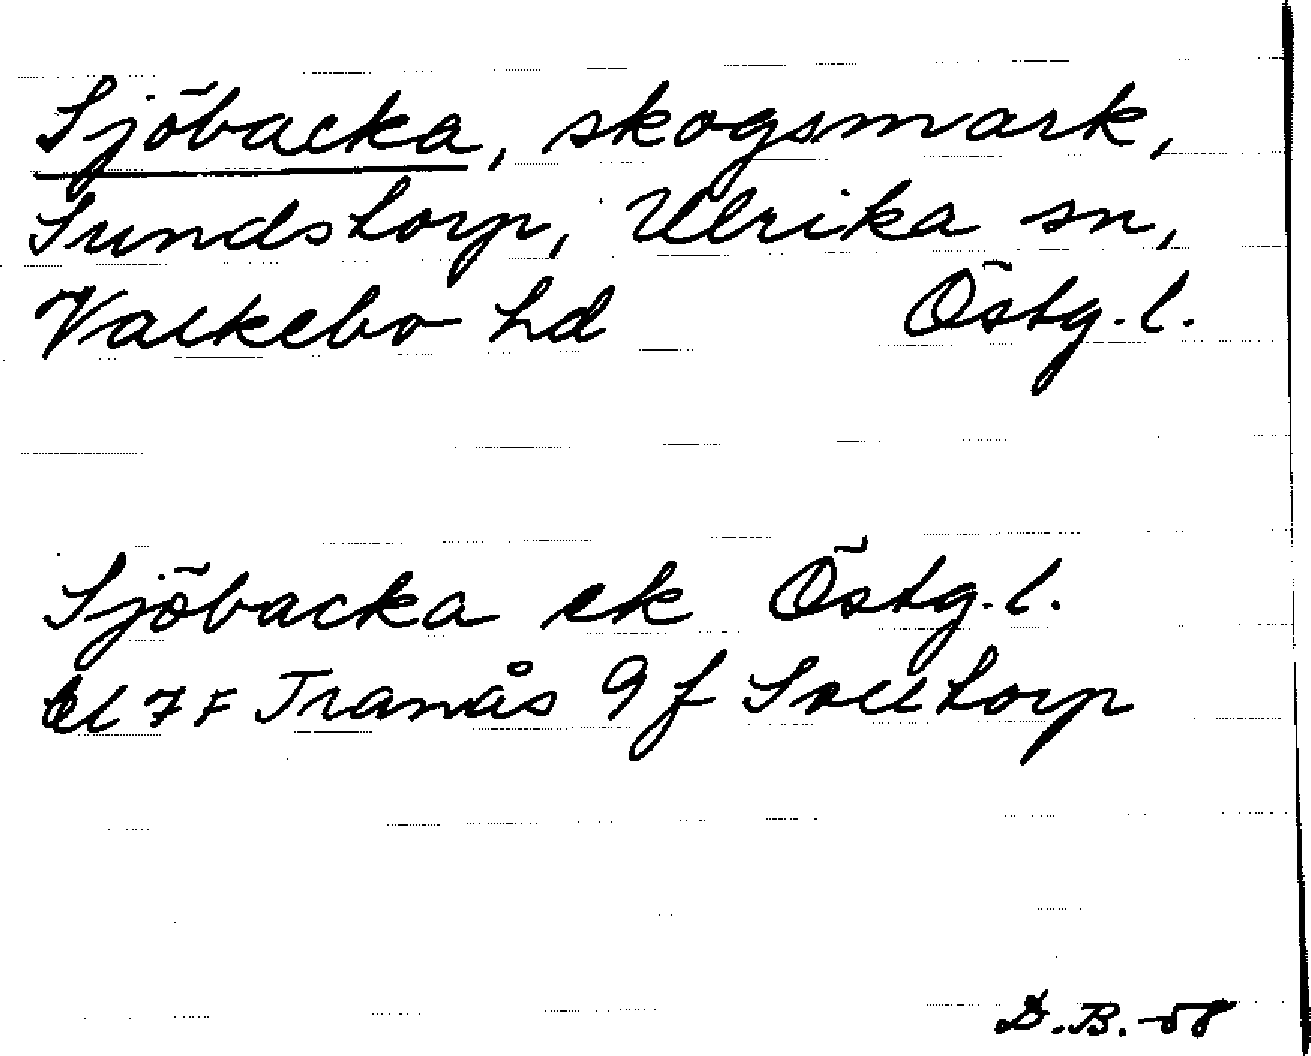 Sjöbacka, skogsmark,
Sundstorp, Ulrika sn,
Valkebo hd Östg. l.
Sjöbacka ek Östg. l.
7 F Tranås 9 f Solltorp
D.B. -58